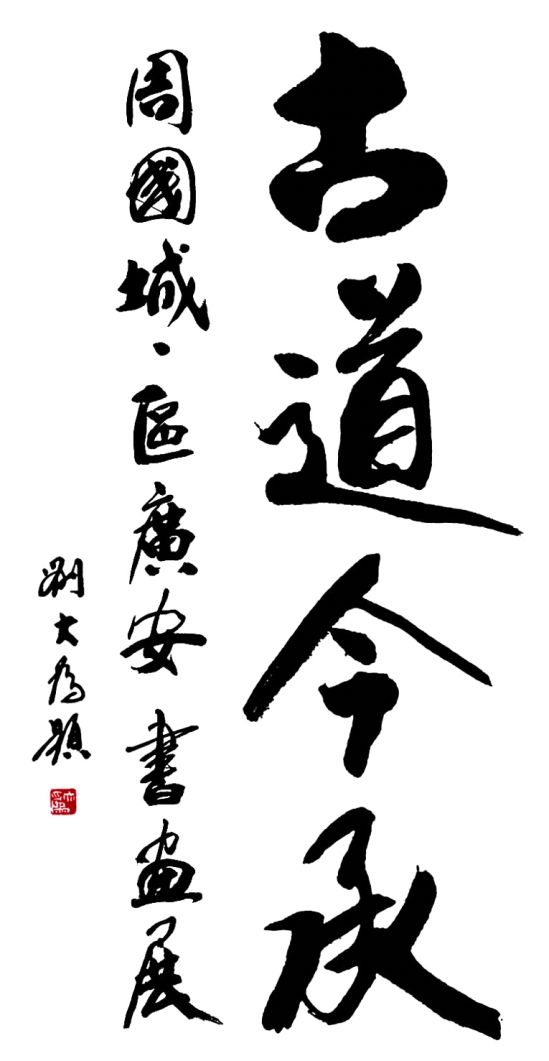 古道今承
周國城·區廣安 書畫展
劉大為題